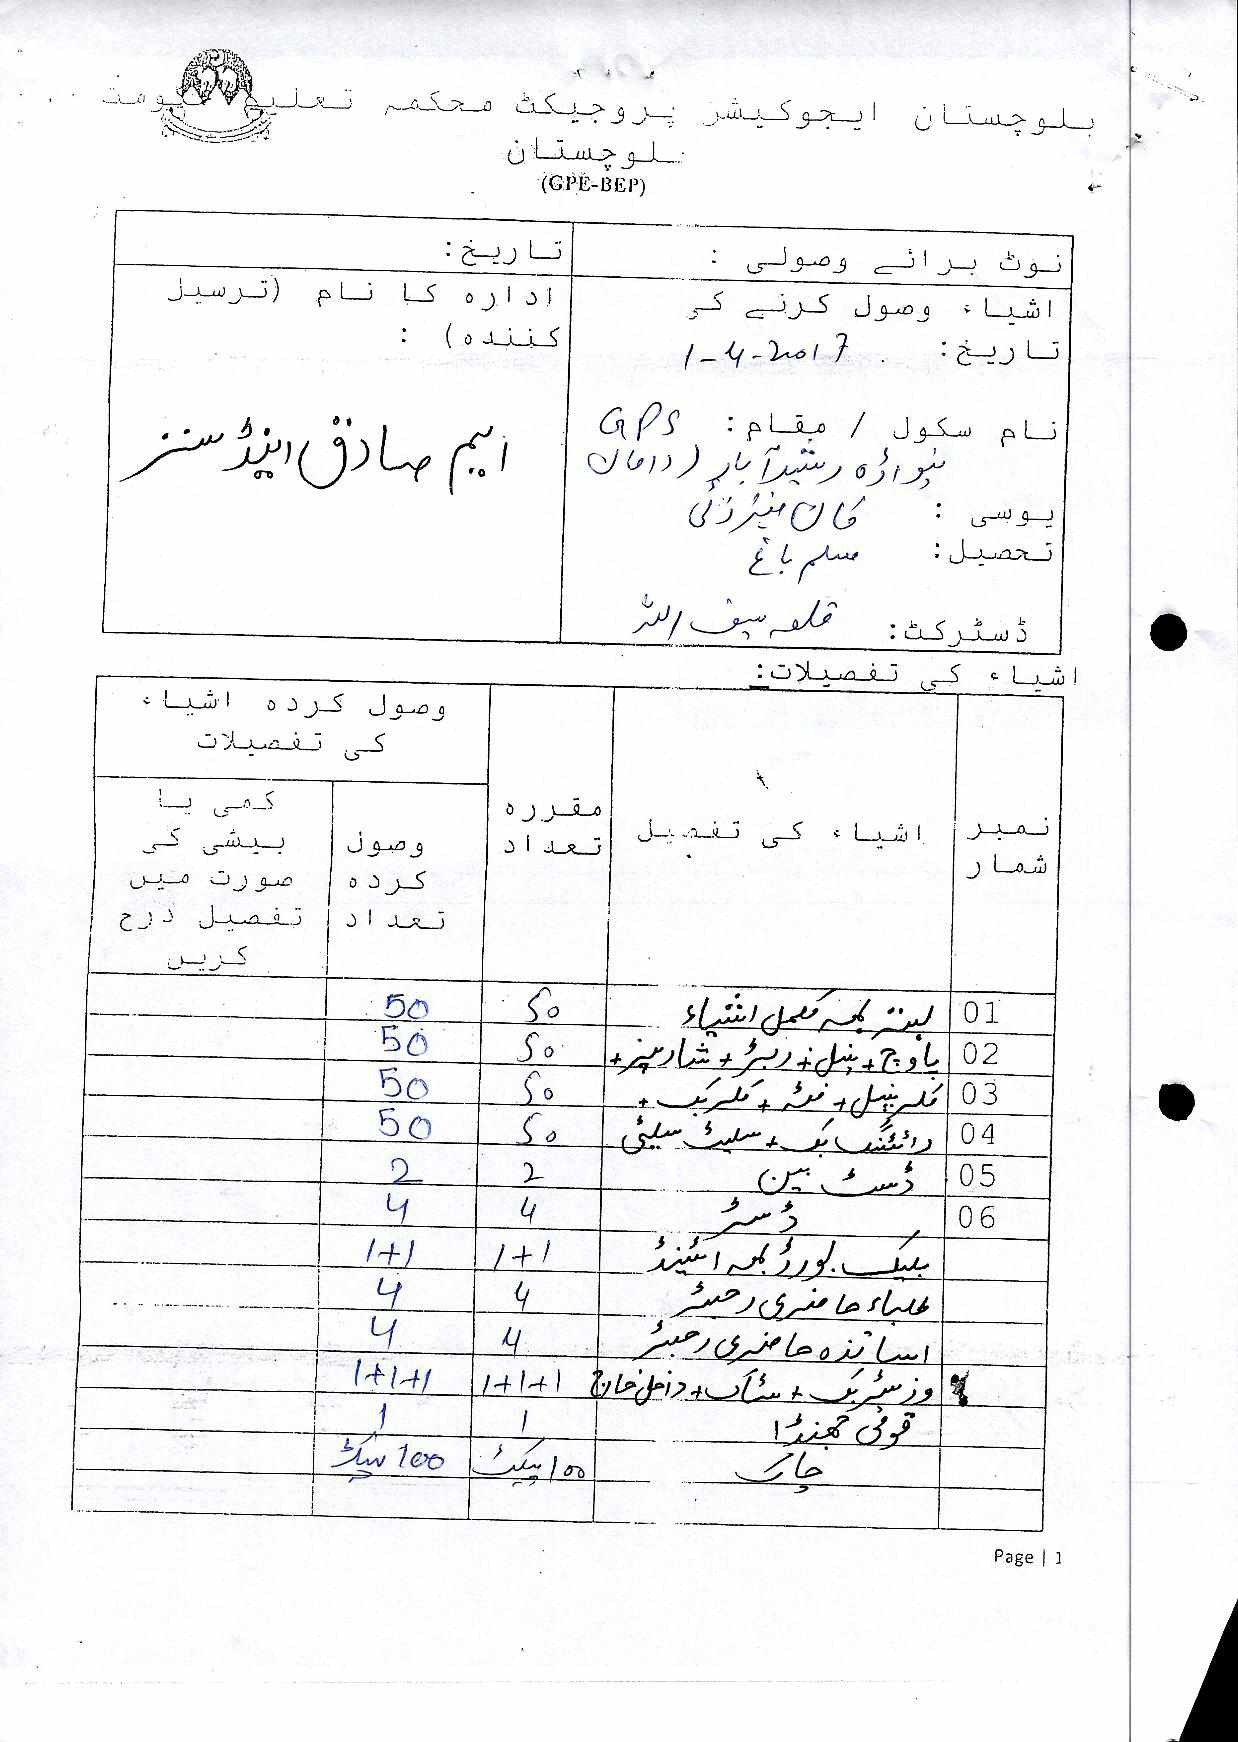 بلوچستان ایجوکیشن پروجیکٹ محکمہ تعلیم حکومت
بلوچستان
(GPE-BEP)
نوٹ برائے وصولی :
اشیاء وصول کرنے کی
تاریخ: 1-4-2017
نام سکول / مقام: GPS
رشید آباد
یوسی :
تحصیل: مسلم باغ
ڈسٹرکٹ: قلعہ سیف اللہ
تاریخ:
ادارہ کا نام (ترسیل
کنندہ) :
ایم صادق اینڈ سنز
اشیاء کی تفصیلات:
نمبر شمار
اشیاء کی تفصیل
مقررہ تعداد
وصول کردہ اشیاء
کی تفصیلات
وصول کردہ تعداد
کمی یا
بیشی کی
صورت میں
تفصیل درج
کریں
01 بستہ بمعہ مکمل اشیاء ۵۰ 50
02 پاوچ + پنسل + ربڑ + شارپنر + ۵۰ 50
03 کلر پنسل + فٹہ + کلر بک + ۵۰ 50
04 رائٹنگ بک + سلیٹ سلیٹی ۵۰ 50
05 ڈسٹ بین 2 2
06 ڈسٹر 4 4
بلیک بورڈ بمعہ اسٹینڈ 1+1 1+1
طلباء حاضری رجسٹر 4 4
اساتذہ حاضری رجسٹر 4 4
وزیٹر بک + سٹاک + داخل خارج 1+1+1 1+1+1
قومی جھنڈا 1 1
چاک ۱۰۰ پیکٹ 100 پیکٹ
Page | 1